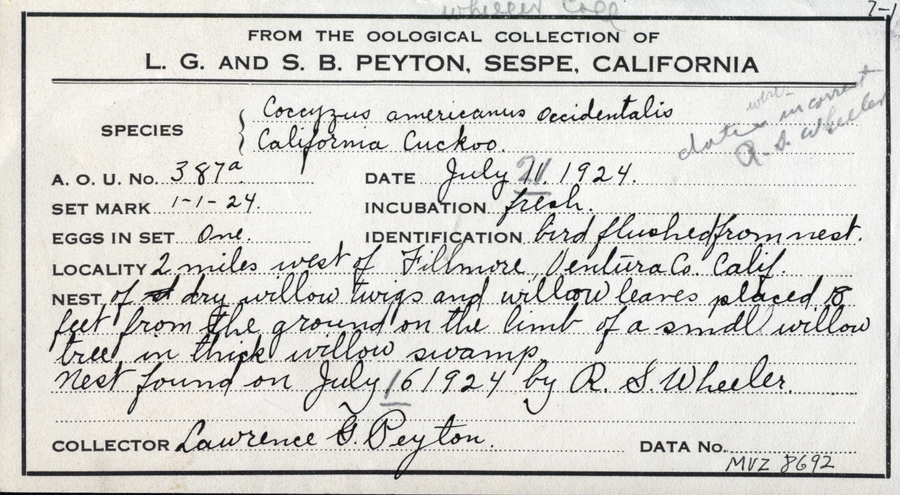 wheeler Coll
7-1
FROM THE OOLOGICAL COLLECTION OF
L. G. AND S. B. PEYTON, SESPE, CALIFORNIA
were
dates incorrect
R. S. Wheeler
SPECIES { Coccyzus americanus occidentalis
California Cuckoo.
A. O. U. No. 387a DATE July 21 1924.
SET MARK 1-1-24. INCUBATION fresh.
EGGS IN SET One. IDENTIFICATION bird flushed from nest.
LOCALITY 2 miles west of Fillmore, Ventura Co. Calif.
NEST of dry willow twigs and willow leaves placed 18
feet from the ground on the limb of a small willow
tree, in thick willow swamp.
Nest found on July 16 1924 by R. S. Wheeler.
COLLECTOR Lawrence G. Peyton. DATA No.
MVZ 8692